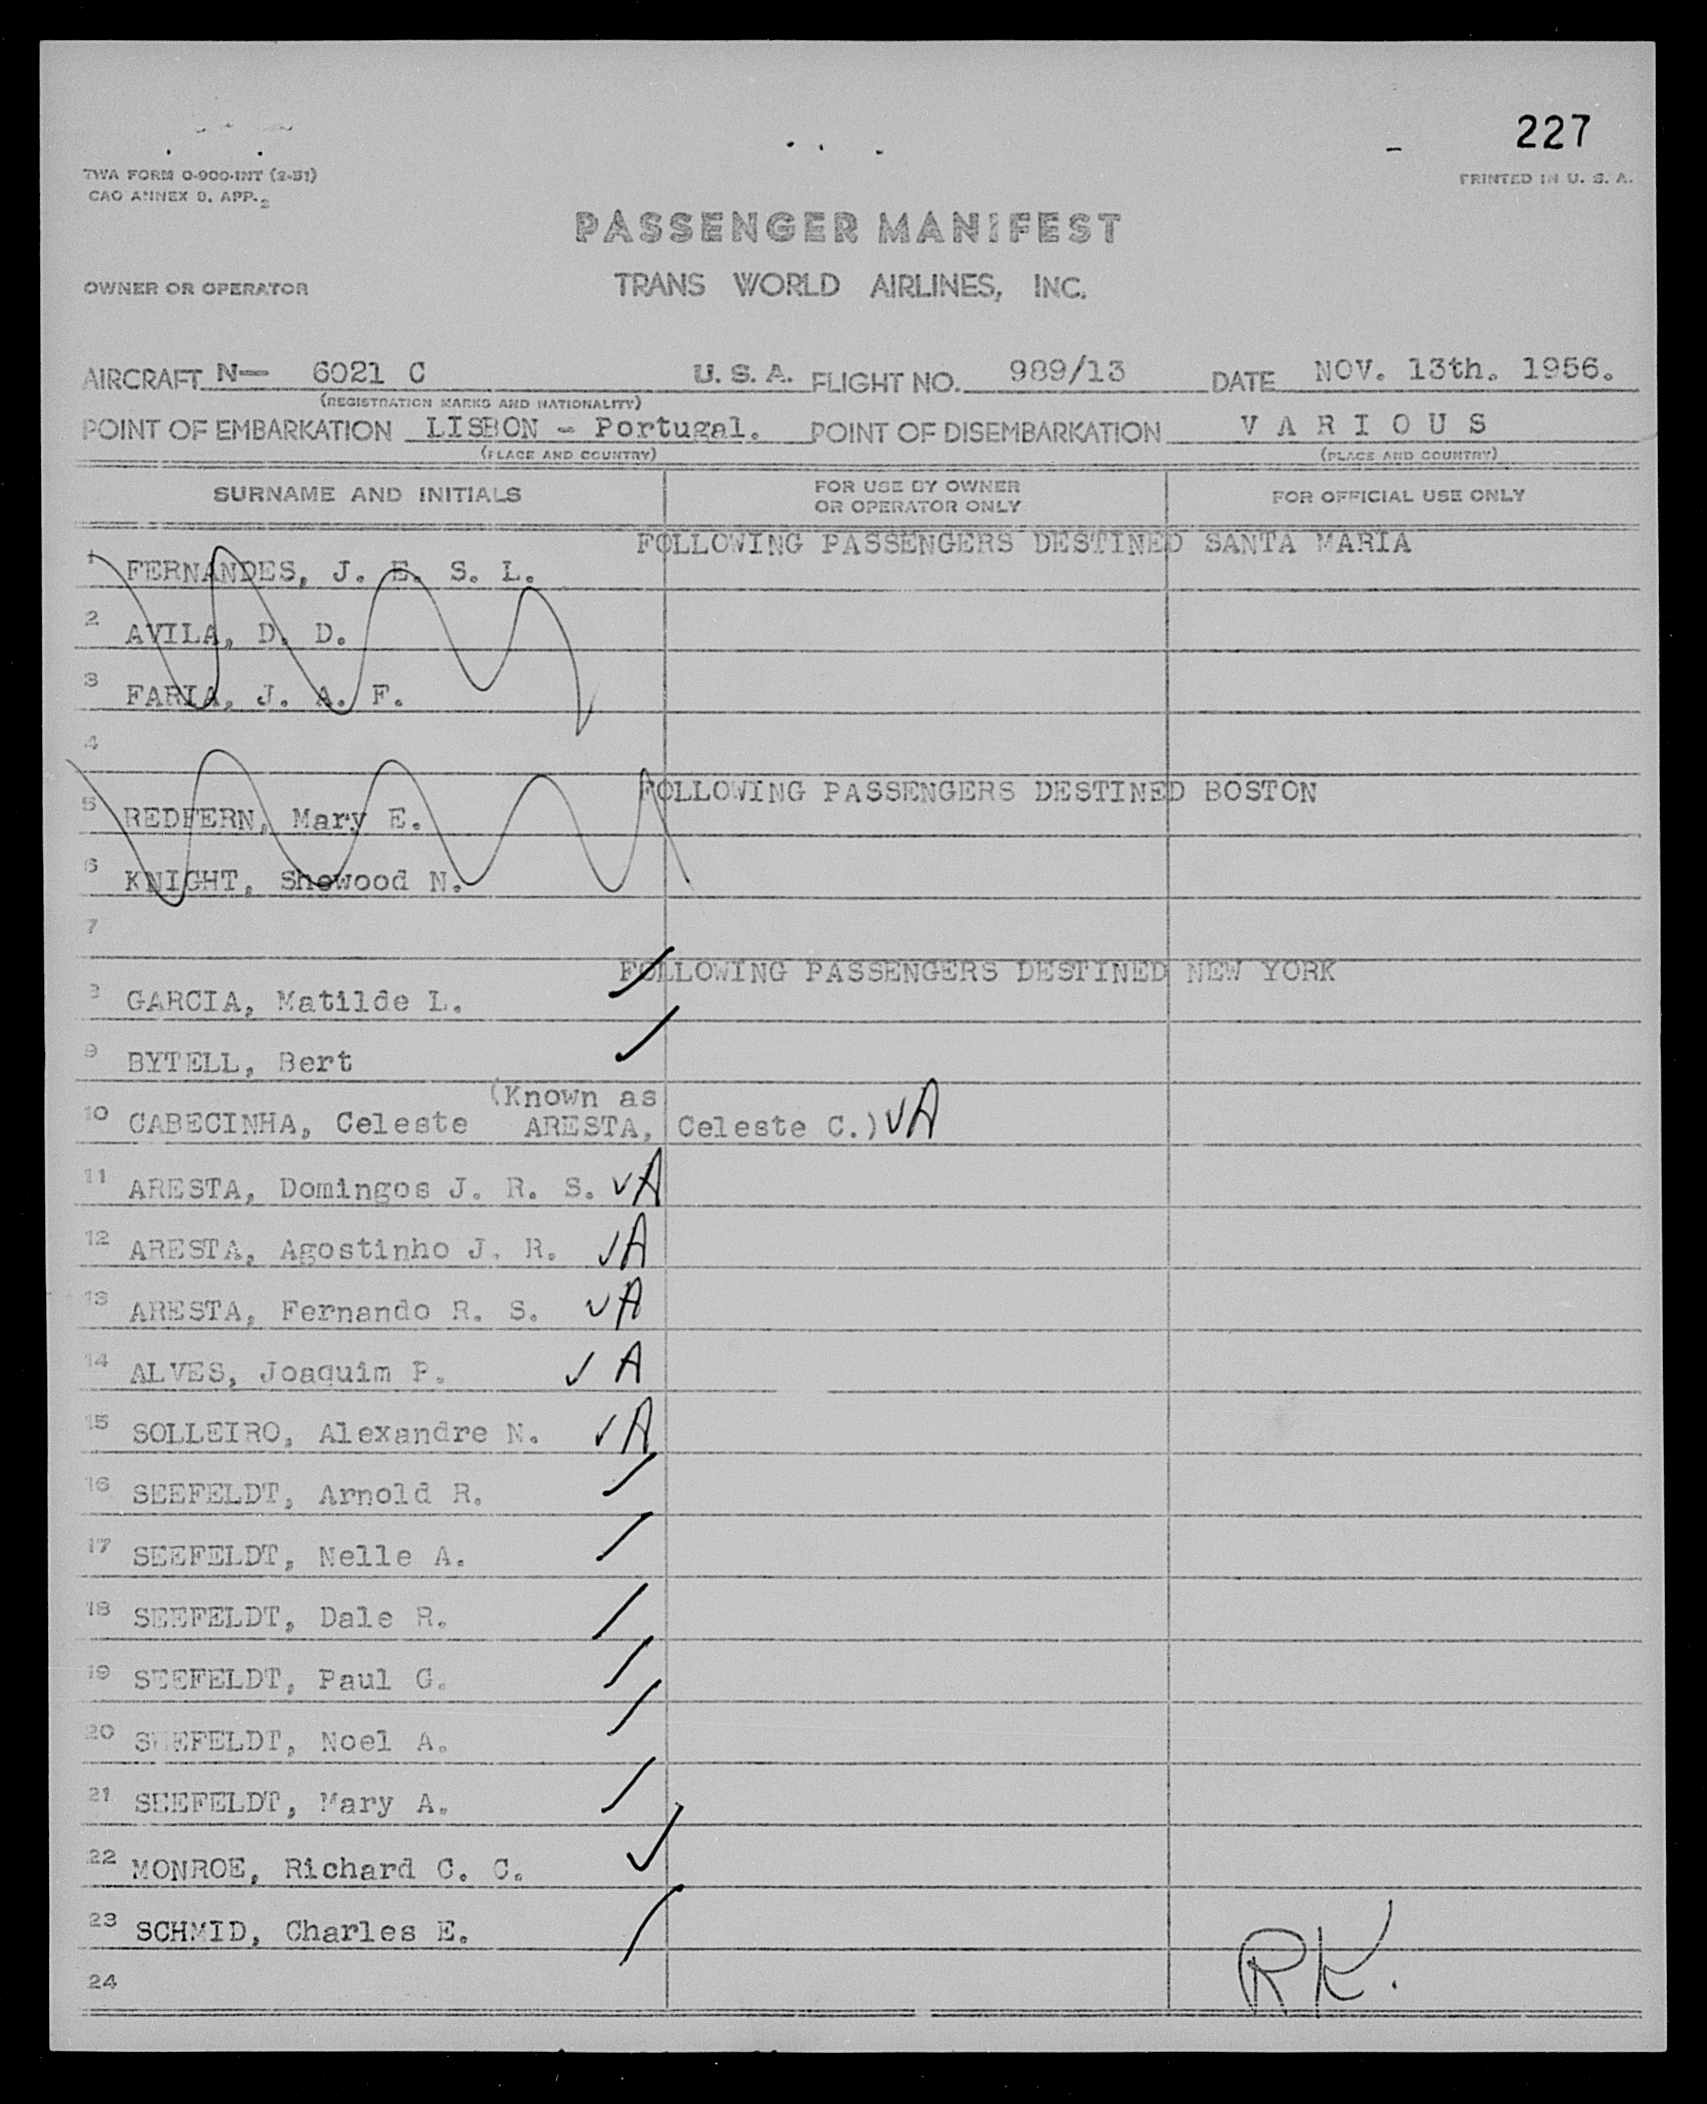 227
TWA FORM O-900-INT (2-51)
CAO ANNEX 9, APP. 2
PRINTED IN U. S. A.
PASSENGER MANIFEST
OWNER OR OPERATOR
TRANS WORLD AIRLINES, INC.
AIRCRAFT N— 6021 C U. S. A. FLIGHT NO. 989/13 DATE NOV. 13th. 1956.
(REGISTRATION MARKS AND NATIONALITY)
POINT OF EMBARKATION LISBON - Portugal. POINT OF DISEMBARKATION V A R I O U S
(PLACE AND COUNTRY) (PLACE AND COUNTRY)
SURNAME AND INITIALS
FOR USE BY OWNER
OR OPERATOR ONLY
FOR OFFICIAL USE ONLY
FOLLOWING PASSENGERS DESTINED SANTA MARIA
1 FERNANDES, J. E. S. L.
2 AVILA, D. D.
3 FARIA, J. A. F.
4
FOLLOWING PASSENGERS DESTINED BOSTON
5 REDFERN, Mary E.
6 KNIGHT, Showood N.
7
FOLLOWING PASSENGERS DESTINED NEW YORK
8 GARCIA, Matilde L.
9 BYTELL, Bert
(Known as
10 CABECINHA, Celeste ARESTA, Celeste C.) ✓A
11 ARESTA, Domingos J. R. S. ✓A
12 ARESTA, Agostinho J. R. ✓A
13 ARESTA, Fernando R. S. ✓A
14 ALVES, Joaquim P. ✓ A
15 SOLLEIRO, Alexandre N. ✓A
16 SEEFELDT, Arnold R.
17 SEEFELDT, Nelle A.
18 SEEFELDT, Dale R.
19 SEEFELDT, Paul G.
20 SEEFELDT, Noel A.
21 SEEFELDT, Mary A.
22 MONROE, Richard C. C. ✓
23 SCHMID, Charles E.
24
RK.